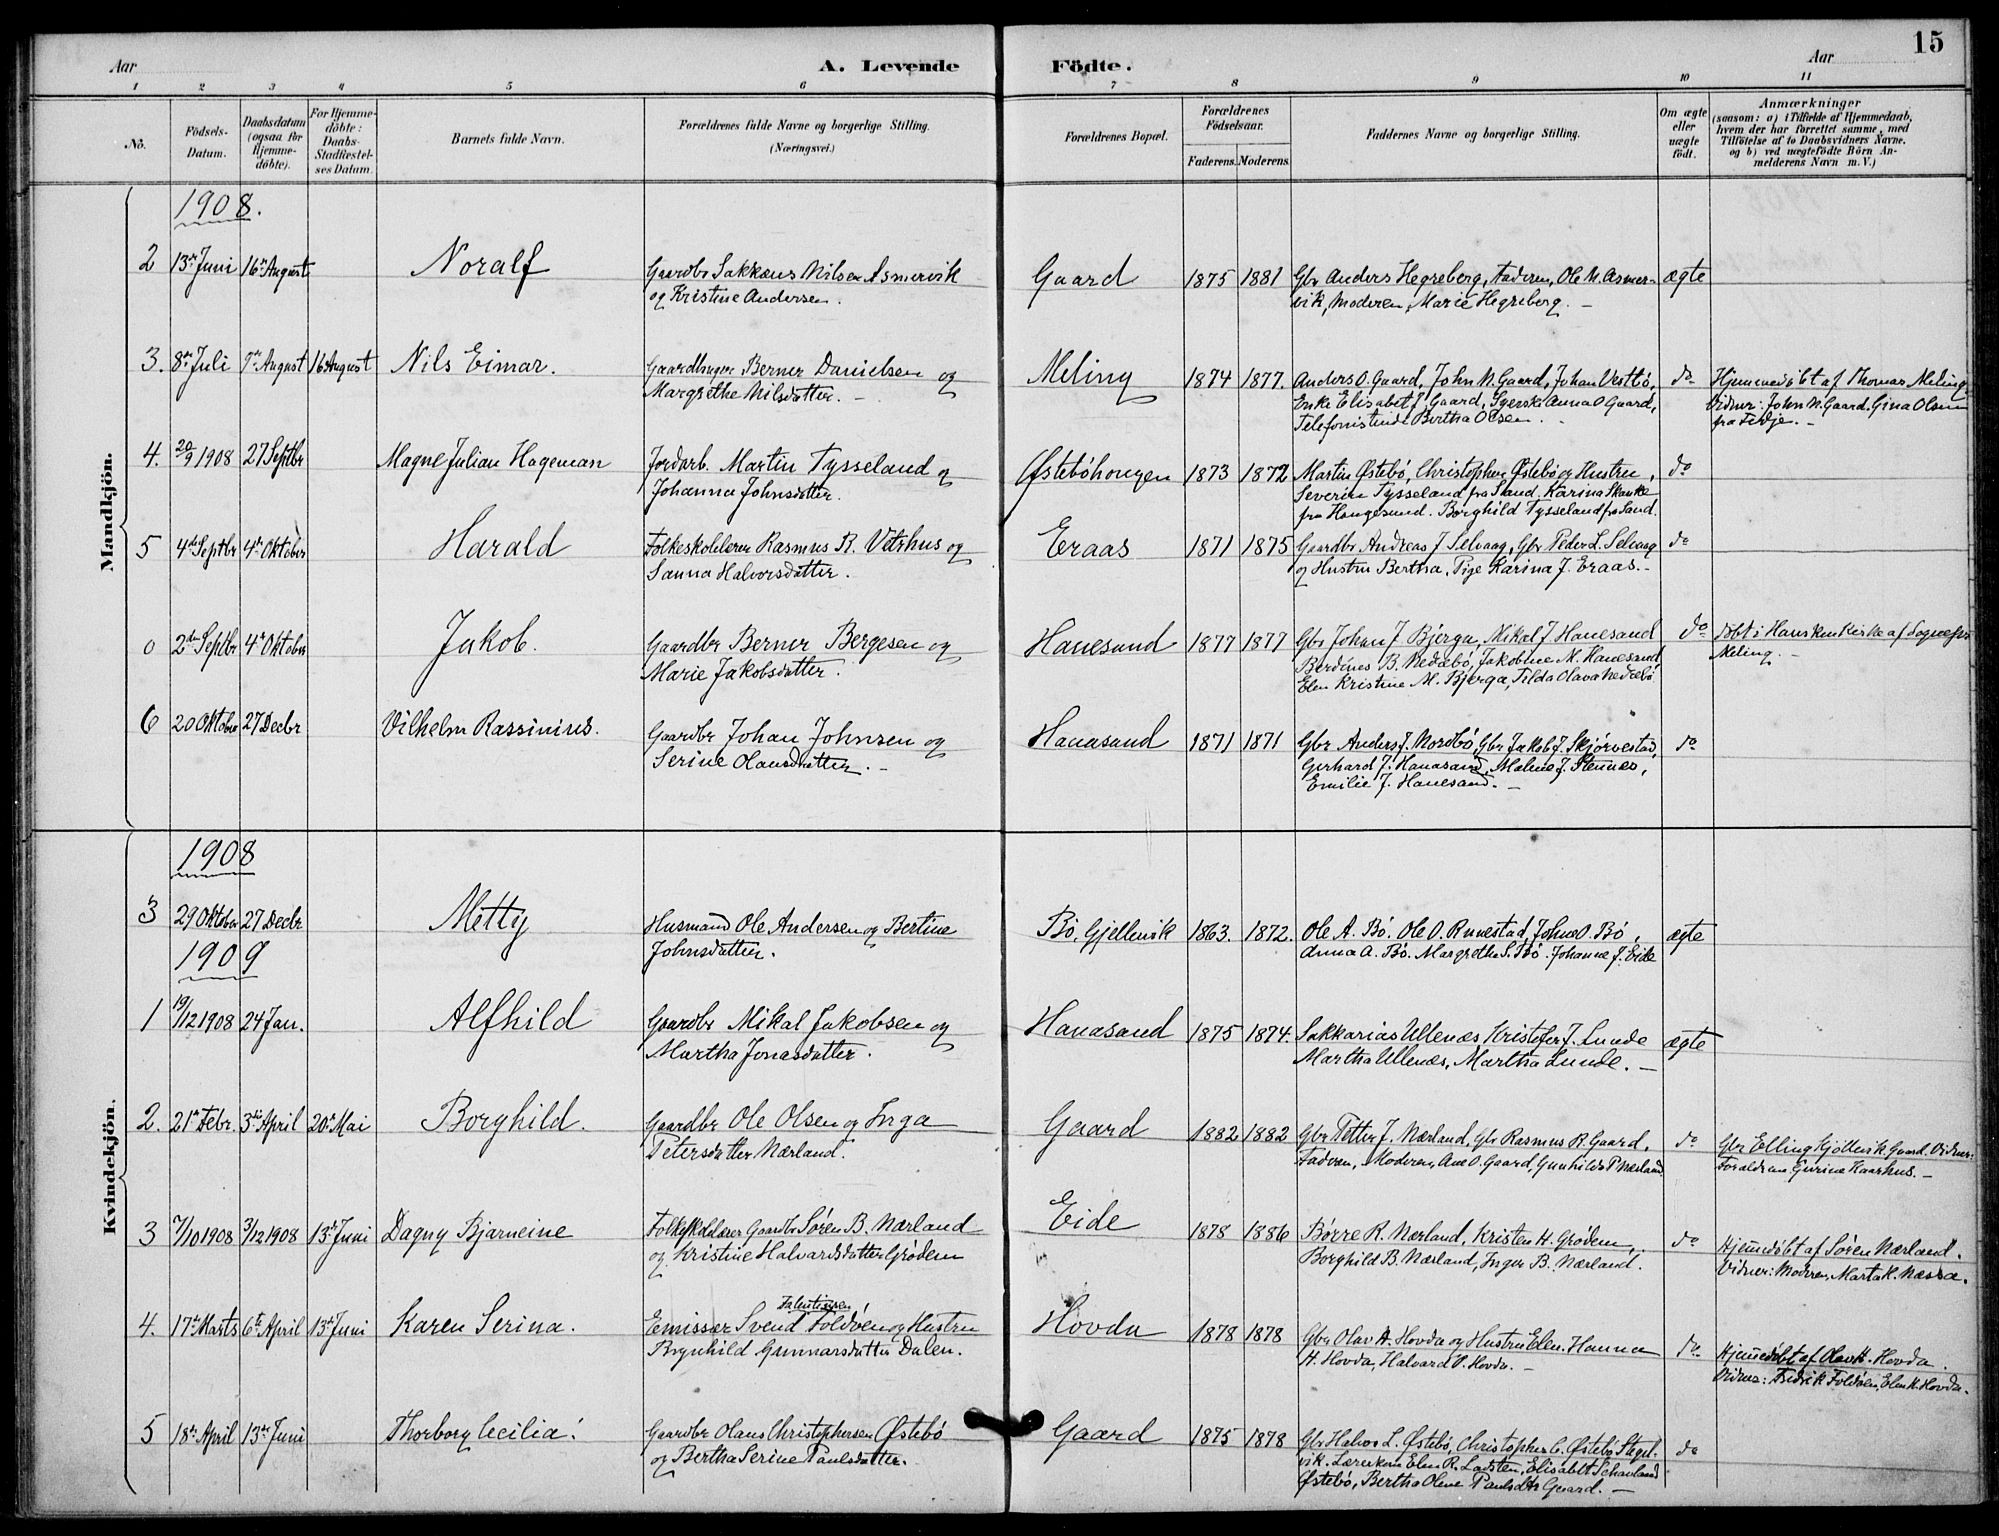 15
Aar
A. Levende Födte.
Aar
1 2 3 4 5 6 7 8 9 10 11
No.
Födsels-Datum.
Daabsdatum (ogsaa for Hjemme-döbte).
For Hjemme-döbte: Daabs-Stadfæstel-ses Datum.
Barnets fulde Navn.
Forældrenes fulde Navne og borgerlige Stilling. (Næringsvei.)
Forældrenes Bopæl.
Forældrenes Födselsaar.
Faderens. Moderens.
Faddernes Navne og borgerlige Stilling.
Om ægte eller uægte födt.
Anmærkninger
(saasom: a) i Tilfælde af Hjemmedaab,
hvem der har forrettet samme, med
Tilföielse af to Daabsvidners Navne.
og b) ved uægtefödte Börn An-
melderens Navn m. V.)
Mandkjön.
1908.
2 13de Juni 16de August Noralf Gaardbr Sakkæus Nilsen Asmervik Gaard 1875 1881 Gbr Anders Hegreberg, Faderen, Ole N. Asmer- ægte
og Kristine Andersen. vik, Moderen, Marie Hegreberg. —
3. 8de Juli 9de August 16 August Nils Eimar. Gaardbruger Berner Danielsen og Meling 1874 1877. Anders O. Gaard, John N. Gaard, Johan Vestbö, do Hjemmedöbt af Thomas Meling
Margrethe Nilsdatter. — Enke Elisabet J. Gaard, Syerske Anna O Gaard, Vidner: John N. Gaard, Gina Olsen
Telefonistinde Bertha Olsen. fra Fedje. —
4. 20/9 1908 27 Septbr Magne Julian Hageman Jordarb. Martin Tysseland og Østeböhougen 1873 1872 Martin Østebö, Christopher Østebö og Hustru, do
Johanna Johnsdatter. Severin Tysseland fra Sand. Karina Skanke
fra Haugesund. Borghild Tysseland fra Sand.
5 4de Septbr 4de Oktober Harald Folkeskolelærer Rasmus R. Vetrhus og Eraas 1871 1875 Gaardbr Andreas J Selvaag, Gbr Peder L. Selvaag do
Sanna Halvorsdatter. og Hustru Bertha, Pige Karina J. Eraas. —
0 2den Septbr 4de Oktober Jakob. Gaardbr Berner Bergesen og Hanesand 1877 1877 Gbr Johan J Bjerga, Mikal J Hanesand do Döbt i Hausken Kirke af Sognepr
Marie Jakobsdatter. Berdines B. Nedrebö, Jakobine M. Hanesand Meling. —
Elen Kristine M. Bjerga, Tilda Olava Nedrebö
6 20 Oktober 27 Decbr Vilhelm Rassinius. Gaardbr Johan Johnsen og Hanasand 1871 1871 Gbr Anders J. Nordbö, Gbr Jakob J. Skjörvestad, do
Serine Olausdatter. — Gerhard J. Hanasand, Malene J. Stennes,
Emilie J. Hanesand. —
Kvindekjön.
1908
3 29 Oktober 27 Decbr Metty Husmand Ole Andersen og Bertine Bö, Gjellevik 1863. 1872. Ole A. Bö. Ole O. Runestad, Johne O. Bö, ægte
Johnsdatter. Anna A. Bö. Margrethe S. Bö. Johanne J. Eide
1909
1 19/12 1908 24 Jan. Alfhild Gaardbr Mikal Jakobsen og Hanasand 1875 1874. Sakkarias Ullenæs, Kristofer J. Lunde ægte
Martha Jonasdatter. Martha Ullenæs, Martha Lunde. —
2. 21de Febr. 3die April 20de Mai Borghild. Gaardbr Ole Olsen og Inga Gaard 1882 1882 Gbr Petter J. Nærland, Gbr Rasmus R. Gaard, do Gbr Elling Gjöllevik, Gaard. Vidner:
Petersdatter Nærland. Faderen, Moderen, Ane O. Gaard, Gunhild P Nærland Forældrene, Gurine Kaarhus. —
3 7/10 1908 3/12 1908 13de Juni Dagny Bjarneine Folkeskolelærer Gaardbr Sören B. Nærland Eide 1878 1886 Börre R. Nærland, Kristen H. Grödem, do Hjemmedöbt af Sören Nærland.
og Kristine Halvardsdatter Grödem Borghild B. Nærland, Inger B. Nærland. Vidner: Moderen, Marta K. Næssa.
4. 17de Marts 6te April 13de Juni Karen Serina. Emissær Svend Foldöen og Hustru Hovda 1878 1878 Gbr Olav H. Hovda og Hustru Elen. Hanna do Hjemmedöbt af Olav H. Hovda.
Brynhild Gunnarsdatter Dalen. H. Hovda, Halvard O. Hovda. — Vidner: Fredrik Foldöen, Elen K. Hovda.
5 18de April 13de Juni Thorborg Cecilia. Gaardbr Olaus Christophersen Østebö Gaard 1875 1878 Gbr Halvor L. Østebö, Christopher C. Østebö Stegel- do
og Bertha Serine Paulsdatter. vik. Lærerinde Elen R. Ladsten, Elisabet Schavland
Østebö, Bertha Olene Paulsdtr Gaard. —